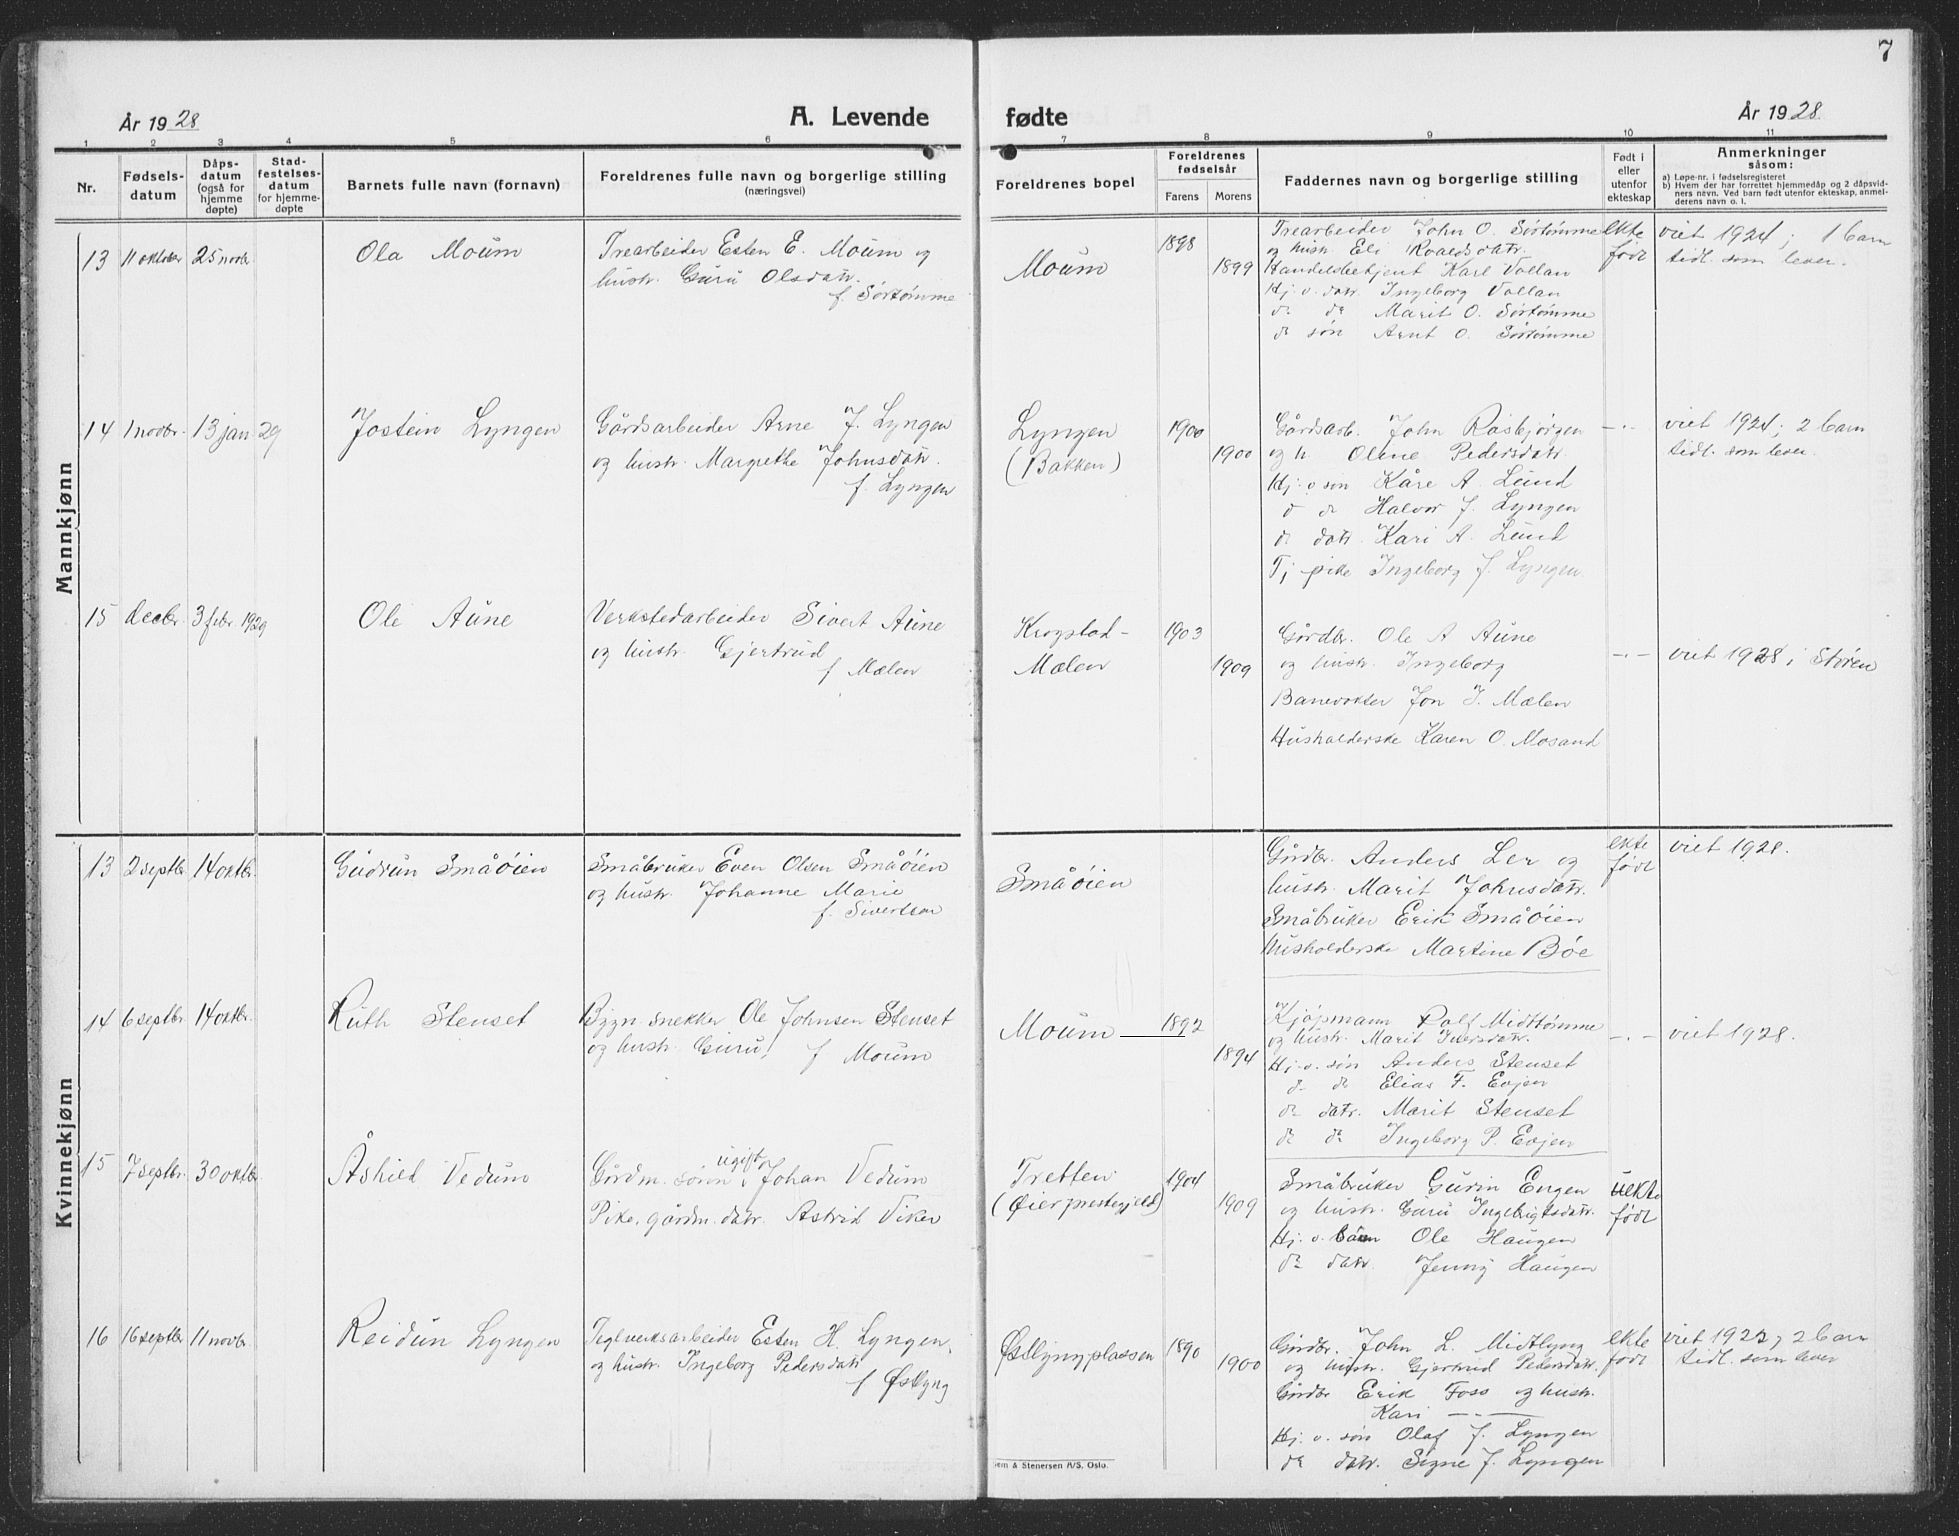 7
År 1928
A. Levende
fødte
År 1928.
1 2 3 4 5 6 7 8 9 10 11
Nr.
Fødsels-
datum
Dåps-
datum
(også for
hjemme
døpte)
Stad-
festelses-
datum
for hjemme-
døpte
Barnets fulle navn (fornavn)
Foreldrenes fulle navn og borgerlige stilling
(næringsvei)
Foreldrenes bopel
Foreldrenes
fødselsår
Farens Morens
Faddernes navn og borgerlige stilling
Født i
eller
utenfor
ekteskap
Anmerkninger
såsom:
a) Løpe-nr. i fødselsregisteret
b) Hvem der har forrettet hjemmedåp og 2 dåpsvid-
ners navn. Ved barn født utenfor ekteskap, anmel-
derens navn o. l.
Mannkjønn
13 11 oktober 25 novbr Ola Moum
Trearbeider Esten E. Moum og
hustr. Guru Olsdatr.
f. Sørtømme
Moum
1898
1899
Trearbeider John O. Sørtømme
og hustr. Eli Roaldsdatr.
Handelsbetjent Karl Vollan
Hj. v. datr. Ingeborg Vollan
do do Marit O. Sørtømme
do søn Arnt O. Sørtømme
ekte
født
viet 1924; 1 barn
tidl. som lever.
14 1 novbr. 13 jan 29 Jostein Lyngen
Gårdsarbeider Arne J. Lyngen
og hustr. Margrethe Johnsdatr.
f. Lyngen
Lyngen
(Bakken)
1900
1900
Gårdsarb. John Rosbjørgen
og h. Oline Pedersdatr.
Hj. v søn Kåre A. Lund
do do Halvor J. Lyngen
do datr. Kari A. Lund
Tj. pike Ingeborg J. Lyngen
—.—
viet 1924; 2 barn
tidl. som lever.
15 decbr. 3 febr. 1929 Ole Aune
Verkstedarbeider Sivert Aune
og hustr. Gjertrud
f Mælen
Krogstad-
Mælen
1903
1909
Gårdbr. Ole A Aune
og hustr. Ingeborg
Banevokter Jon J. Mælen
Husholderske Karen O. Mosand
—.—
viet 1928 i Støren
Kvinnekjønn
13 2 septbr 14 oktbr. Gudrun Småøien
Småbruker Even Olsen Småøien
og hustr. Johanne Marie
f. Sivertsen
Småøien
Gårdbr. Anders Ler og
hustr. Marit Johnsdatr.
Småbruker Erik Småøien
Husholderske Martine Bøe
ekte
født
viet 1928.
14 6 septbr. 14 oktbr. Ruth Stenset
Bygn. snekker Ole Johnsen Stenset
og hustr. Guru f Moum
Moum
1892
1894
Kjøpmann Rolf Midttømme
og hustr. Marit Iversdatr.
Hj. v. søn Anders Stenset
do do Elias F. Evjen
do datr. Marit Stenset
do do Ingeborg P. Evjen
—.—
viet 1928.
15 7 septbr. 30 oktbr. Åshild Vedum
Gårdm. sønn ugift Johan Vedum
Pike, gårdm. datr. Astrid Viker
Tretten
(Øier prestegjeld)
1904
1909
Småbruker Gurin Engen
og hustr. Guru Ingebrigtsdatr.
Hj. v. Ole Haugen
do datr. Jenny Haugen
uekte
født
16 16 septbr 11 novbr. Reidun Lyngen
Teglverksarbeider Esten H. Lyngen,
og hustr. Ingeborg Pedersdatr
f Østlyng
Østlyngplassen
1890
1900
Gårdbr. John L. Midtlyng
og hustr. Gjertrud Pedersdatr.
Gårdbr Erik Foss og hustr.
Kari —.—
Hj. v. søn Olaf J. Lyngen
do datr. Signe J. Lyngen
ekte
født
viet 1922, 2 barn
tidl. som lever
Sem & Stenersen A/S, Oslo.